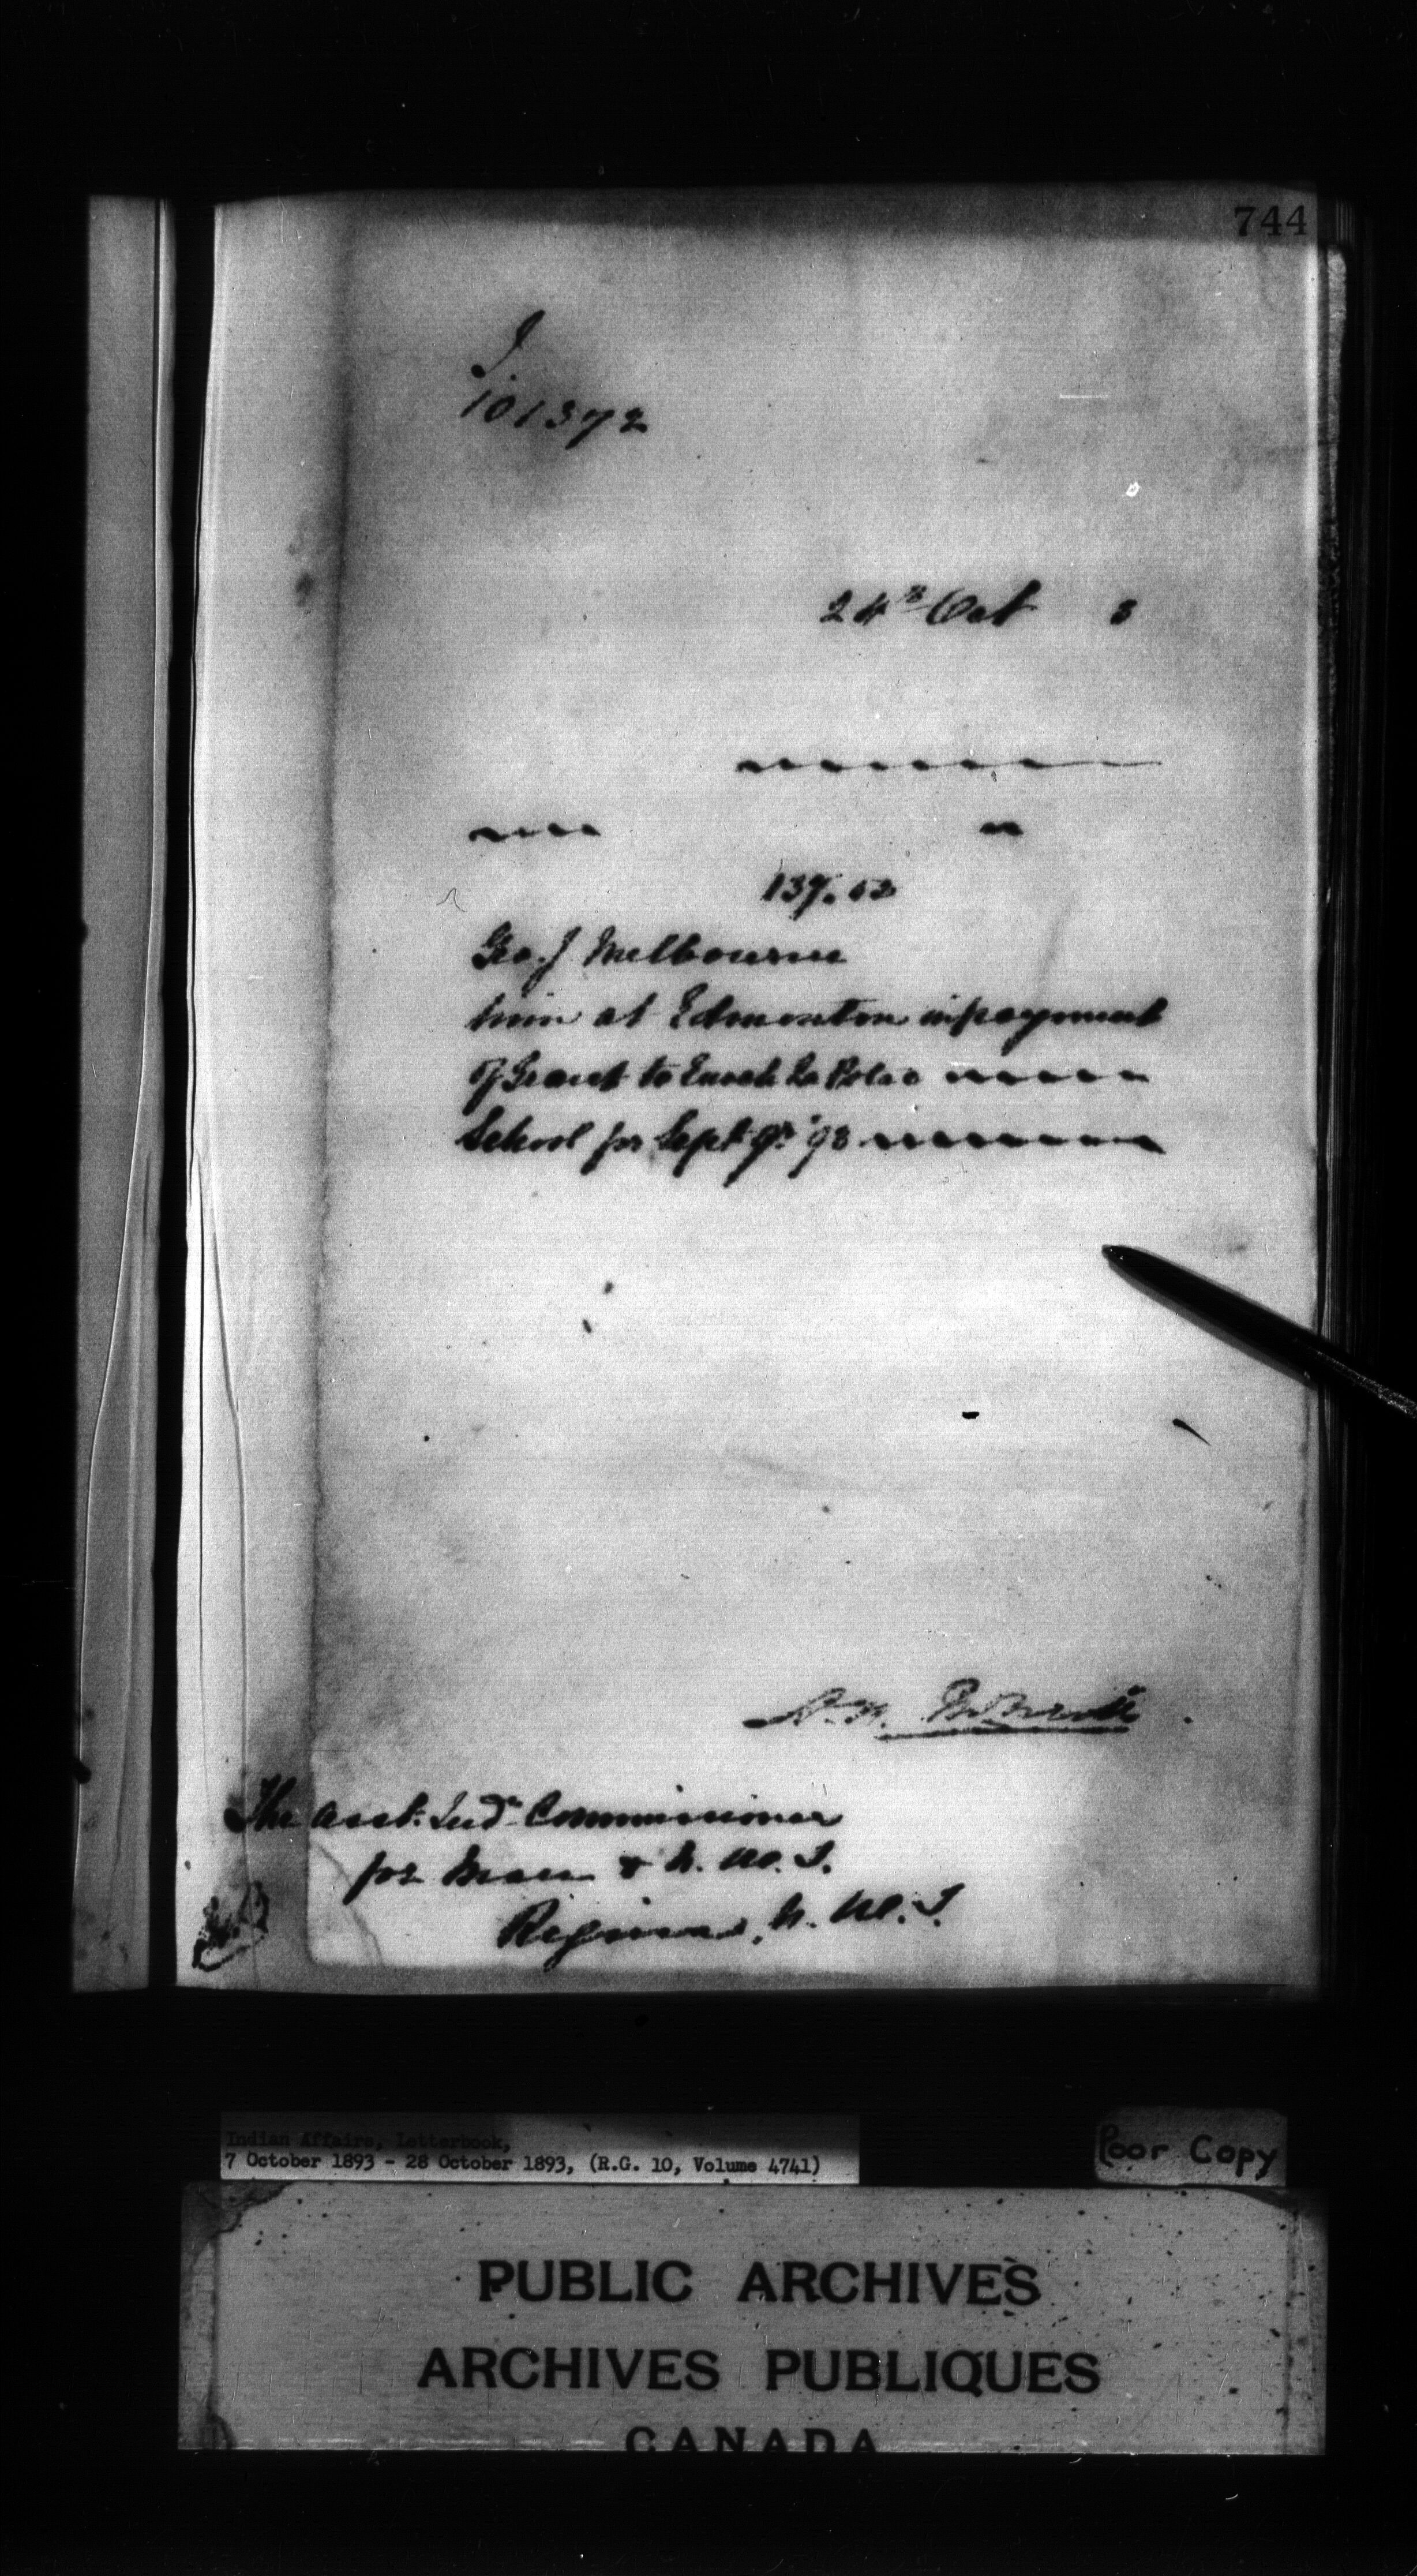 744
J.
101372
24th Oct 3
137.52
Geo. J Melbourne
him at Edmonton in payment
of Grant to Enoch La Potac
School for Sept Qr '93
The Asst. Indn Commissioner
for Man & N.W.T.
Regina, N.W.T.
Indian Affairs, Letterbook,
7 October 1893 - 28 October 1893, (R.G. 10, Volume 4741)
Poor Copy
PUBLIC ARCHIVES
ARCHIVES PUBLIQUES
CANADA